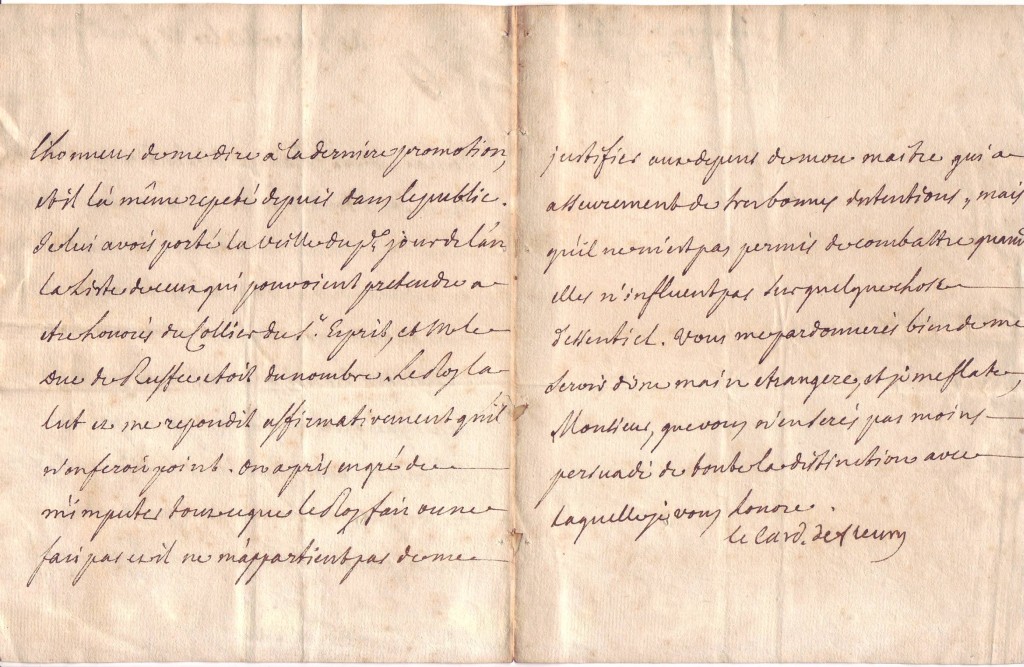 l'honneur de me dire a la derniere promotion,
et il l'a même repeté depuis dans le public.
Je lui avois porté la veille du pr. jour de l'an
la Liste de ceux qui pouvoient pretendre a
etre honorés du Collier du St. Esprit, et M. le
Duc de Ruffec etoit du nombre. Le Roy la
lut et me repondit affirmativement qu'il
n'en feroit point. On a pris en gré de
m'imputer tout ce que le Roy fait ou ne
fait pas et il ne m'appartient pas de me
justifier aux depens de mon maitre qui a
asseurement de tres bonnes intentions, mais
qu'il ne m'est pas permis de combattre quand
elles n'influent pas sur quelque chose
d'essentiel. Vous me pardonnerés bien de me
servir d'une main etrangere, et je me flate,
Monsieur, que vous n'en serés pas moins
persuadé de toute la distinction avec
laquelle je vous honore.
le Card. de fleury